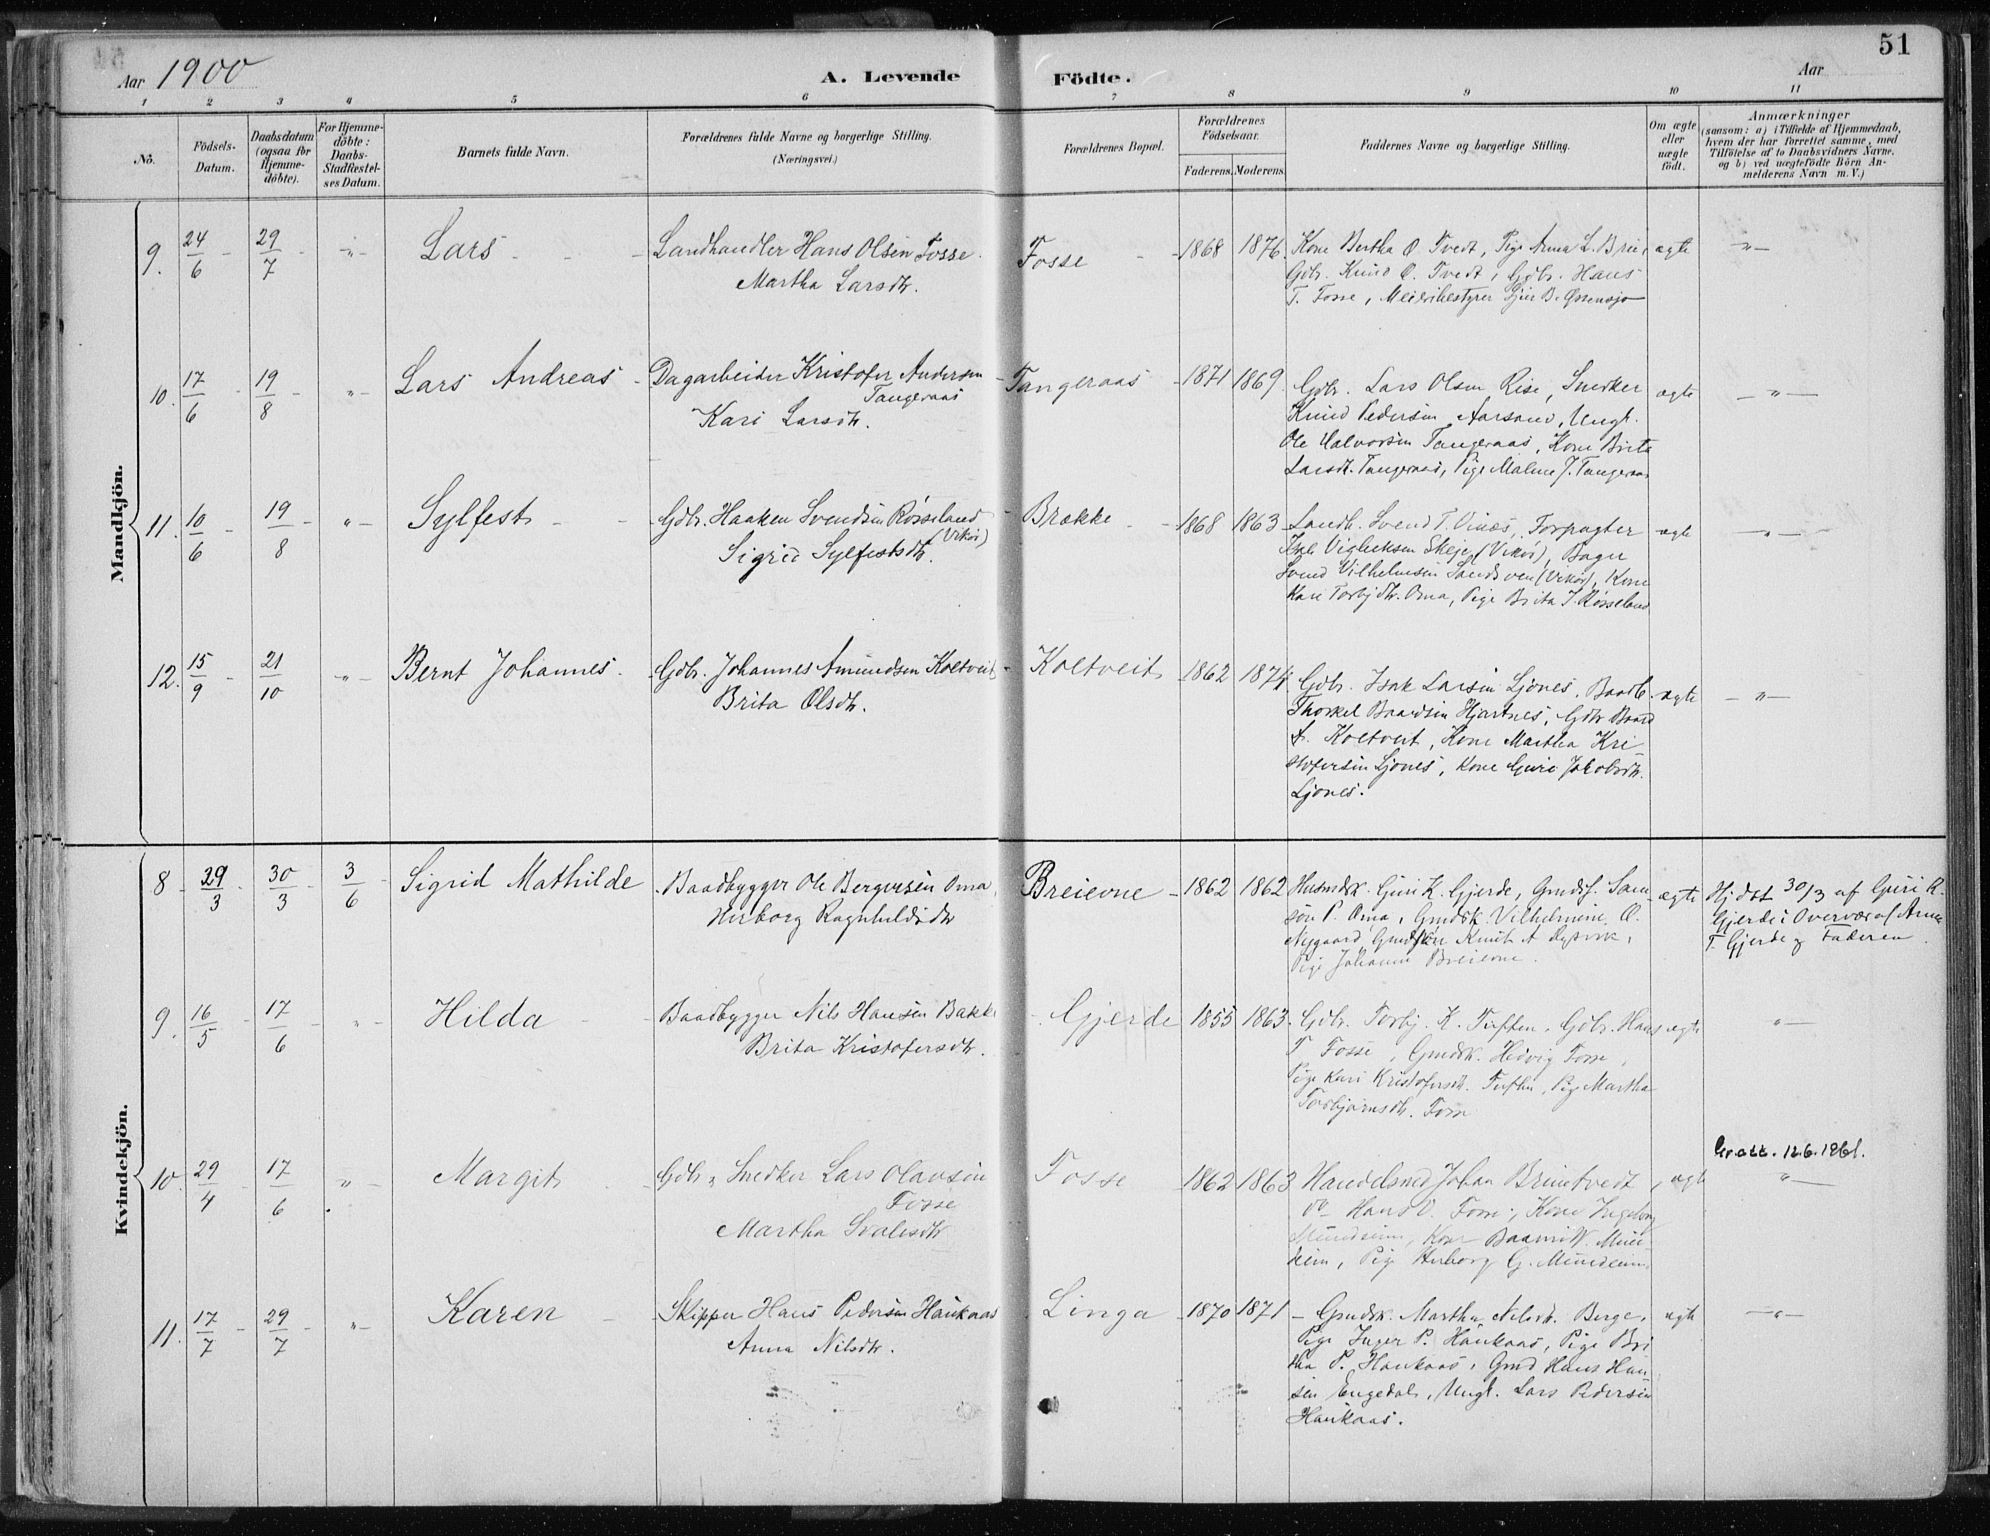 51
Aar 1900
A. Levende
Födte.
Aar
1 2 3 4 5 6 7 8 9 10 11
Nô.
Födsels-
Datum.
Daabsdatum
(ogsaa for
Hjemme-
döbte).
For Hjemme-
döbte:
Daabs-
Stadfæstel-
ses Datum.
Barnets fulde Navn.
Forældrenes fulde Navne og borgerlige Stilling.
(Næringsvei.)
Forældrenes Bopæl.
Forældrenes
Födselsaar.
Faderens. Moderens.
Faddernes Navne og borgerlige Stilling.
Om ægte
eller
uægte
födt.
Anmærkninger
(saasom: a) i Tilfælde af Hjemmedaab,
hvem der har forrettet samme, med
Tilföielse af to Daabsvidners Navne,
og b) ved uægtefödte Börn An-
melderens Navn m. V.)
Mandkjön.
9. 24/6 - 29/7 - " - Lars - Landhandler Hans Olsen Fosse
Martha Larsdtr.
Fosse - 1868 1876. Kone Bertha O. Tvedt, Pige Anna L. Brei, ægte " -
Gdbr. Knud O. Tvedt, Gdbr. Hans
T. Fosse, Meieribestyrer B.
10. 17/6 - 19/8 - " - Lars Andreas - Dagarbeider Kristofer Andersen
Tangeraas
Kari Larsdtr.
Tangeraas - 1871 1869. Gdbr. Lars Olsen Rise, Snedker ægte - " -
Knud Pedersen Aarsand, Ungk.
Ole Halvorsen Tangeraas, Kone Brita
Larsdt. Tangeraas, Pige Malene J. Tangeraas
11. 10/6 - 19/8 - " - Sylfest - Gdbr. Haaken Svendsen Rösseland
(Vikör)
Sigrid Sylfestsdtr.
Brække - 1868 1863 Landh. Svend T. Vinæs, Forpagter ægte - " -
Viglecksen Skeje (Vikör), Bager
Svend Vilhelmsen Sandven (Vikör), Kone
Kari Torbjdtr. Oma, Pige Brita J. Rösseland
12. 15/9 - 21/10 - " - Bernt Johannes. - Gdbr. Johannes Amundsen Koltveit
Brita Olsdtr.
Koltveit - 1862 1874 Gdbr. Isak Larsen Ljones, Baadb. ægte - " -
Thorkel Baardsen Hjartnes, Gdbr Baard
A. Koltveit, Kone Martha Kri-
stofersen Ljones, Kone Guri Jakobsdtr.
Ljones.
Kvindekjön.
8 - 29/3 - 30/3 - 3/6 Sigrid Mathilde - Baadbygger Ole Bergersen Oma,
Herborg Ragnhildsdtr
Breievne - 1862 1862 Husmdsk. Guri K. Gjerde, Gmdsf. Sam- ægte Hjdbt 30/3 af Guri K.
sön P. Oma, Gmdsk. Vilhelmine O. Gjerde i Overvær af Anna
Nygaard, Knut A. T. Gjerde og Faderen.
Pige Johanne Breievne.
9. 16/5 - 17/6 - " - Hilda - Baadbygger Nils Hansen Bakke
Brita Kristofersdtr.
- Gjerde 1855 1863. Gdbr. Torbj. K. Tuften, Gdbr. Hans ægte " -
T Fosse, Gmdsk. Hedvig Fosse,
Pige Kari Kristofersdt. Tuften, Pige Martha
Torbjörnsdtr. Fosse
10. 29/4 - 17/6 " - Margit - Gdbr. & Snedker Lars Olavsen
Fosse
Martha
Fosse - 1862 1863 Handelsmd Johan Bruntvedt, ægte " -
do Hans O. Fosse, Kone Ingeborg
Mundheim, Kone Mund-
heim, Pige Herborg G. Mundheim.
12.6.1961.
11. 17/7 - 29/7 - " - Karen - Skipper Hans Pedersen Haukaas
Anna Nilsdtr.
Linga - 1870 1871 - Gmdsk. Martha Nilsdt. Berge, ægte - " -
Pige Inger P. Haukaas, Pige Bri
tha P. Haukaas, Gmd Hans Han-
sen Engedal, Ungk. Lars Pedersen
Haukaas.